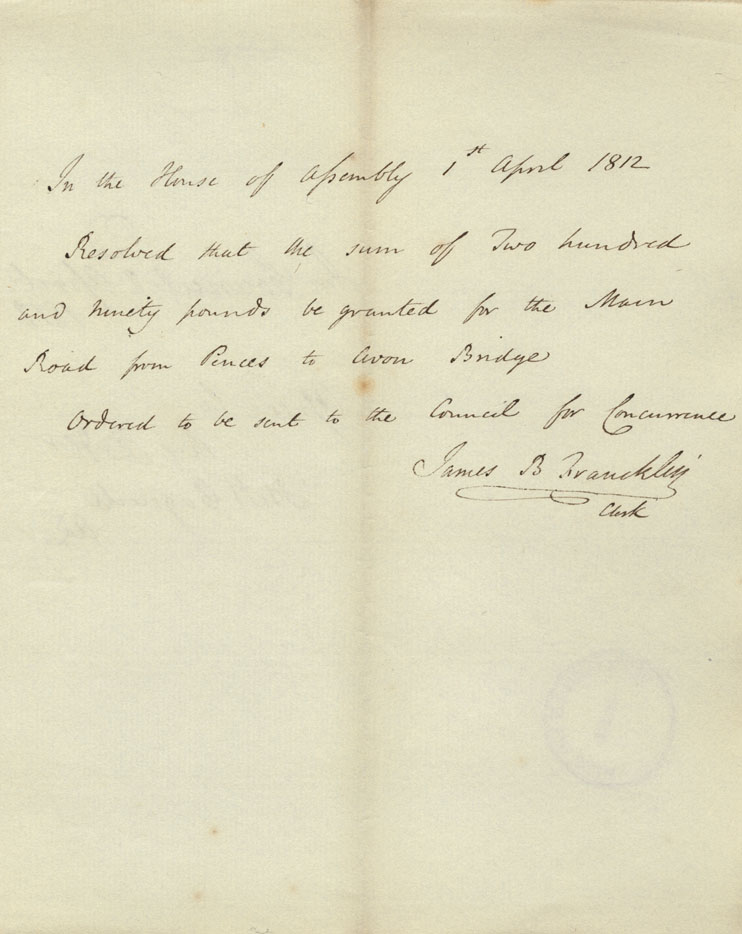 In the House of Assembly 1st April 1812
Resolved that the sum of Two hundred
and ninety pounds be granted for the Main
Road from Pences to Avon Bridge
Ordered to be sent to the Council for Concurrence
James B Francklin
Clerk